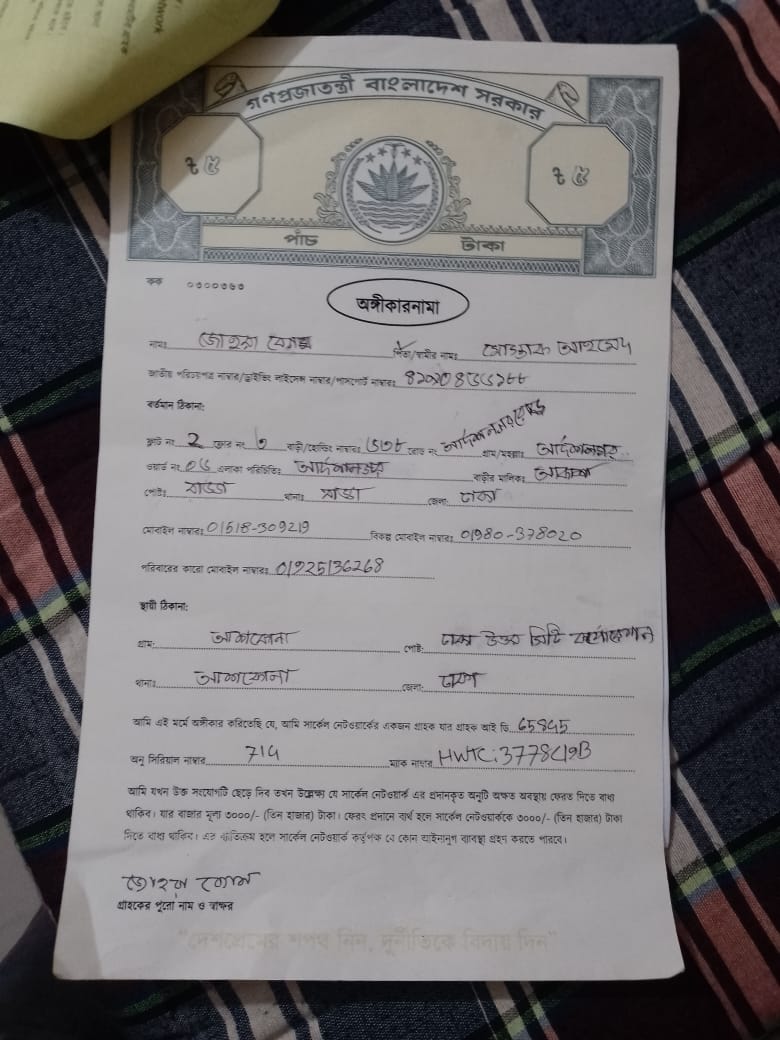 twork
গণপ্রজাতন্ত্রী বাংলাদেশ সরকার
৳ ৫ ৳ ৫
পাঁচ টাকা
কক ০৩০০৩৬৩
অঙ্গীকারনামা
নামঃ জোহরা বেগম পিতা/স্বামীর নামঃ মোস্তাক আহমেদ
জাতীয় পরিচয়পত্র নাম্বার/ড্রাইভিং লাইসেন্স নাম্বার/পাসপোর্ট নাম্বারঃ
বর্তমান ঠিকানা:
ফ্লাট নং 2 ফ্লোর নং ৩ বাড়ী/হোল্ডিং নাম্বারঃ রোড নং আদর্শনগর রোড গ্রাম/মহল্লাঃ আদর্শনগর
ওয়ার্ড নং এলাকা পরিচিতিঃ আদর্শনগর বাড়ীর মালিকঃ আকাশ
পোষ্টঃ বাড্ডা থানাঃ বাড্ডা জেলা: ঢাকা
মোবাইল নাম্বারঃ 01618-309219 বিকল্প মোবাইল নাম্বারঃ 01980-378020
পরিবারের কারো মোবাইল নাম্বারঃ 01925136268
স্থায়ী ঠিকানা:
গ্রাম: আশকোনা পোষ্ট: ঢাকা উত্তর সিটি কর্পোরেশন
থানাঃ আশকোনা জেলা: ঢাকা
আমি এই মর্মে অঙ্গীকার করিতেছি যে, আমি সার্কেল নেটওয়ার্কের একজন গ্রাহক যার গ্রাহক আই ডি 65845
অনু সিরিয়াল নাম্বার 714 ম্যাক নাম্বার HWTC:3778C19B
আমি যখন উক্ত সংযোগটি ছেড়ে দিব তখন উল্লেক্ষ্য যে সার্কেল নেটওয়ার্ক এর প্রদানকৃত অনুটি অক্ষত অবস্থায় ফেরত দিতে বাধ্য
থাকিব। যার বাজার মূল্য ৩০০০/- (তিন হাজার) টাকা। ফেরৎ প্রদানে ব্যর্থ হলে সার্কেল নেটওয়ার্ককে ৩০০০/- (তিন হাজার) টাকা
দিতে বাধ্য থাকিব। এর ব্যতিক্রম হলে সার্কেল নেটওয়ার্ক কর্তৃপক্ষ যে কোন আইনানুগ ব্যবস্থা গ্রহন করতে পারবে।
জোহরা বেগম
গ্রাহকের পুরো নাম ও স্বাক্ষর
"দেশপ্রেমের শপথ নিন, দুর্নীতিকে বিদায় দিন"